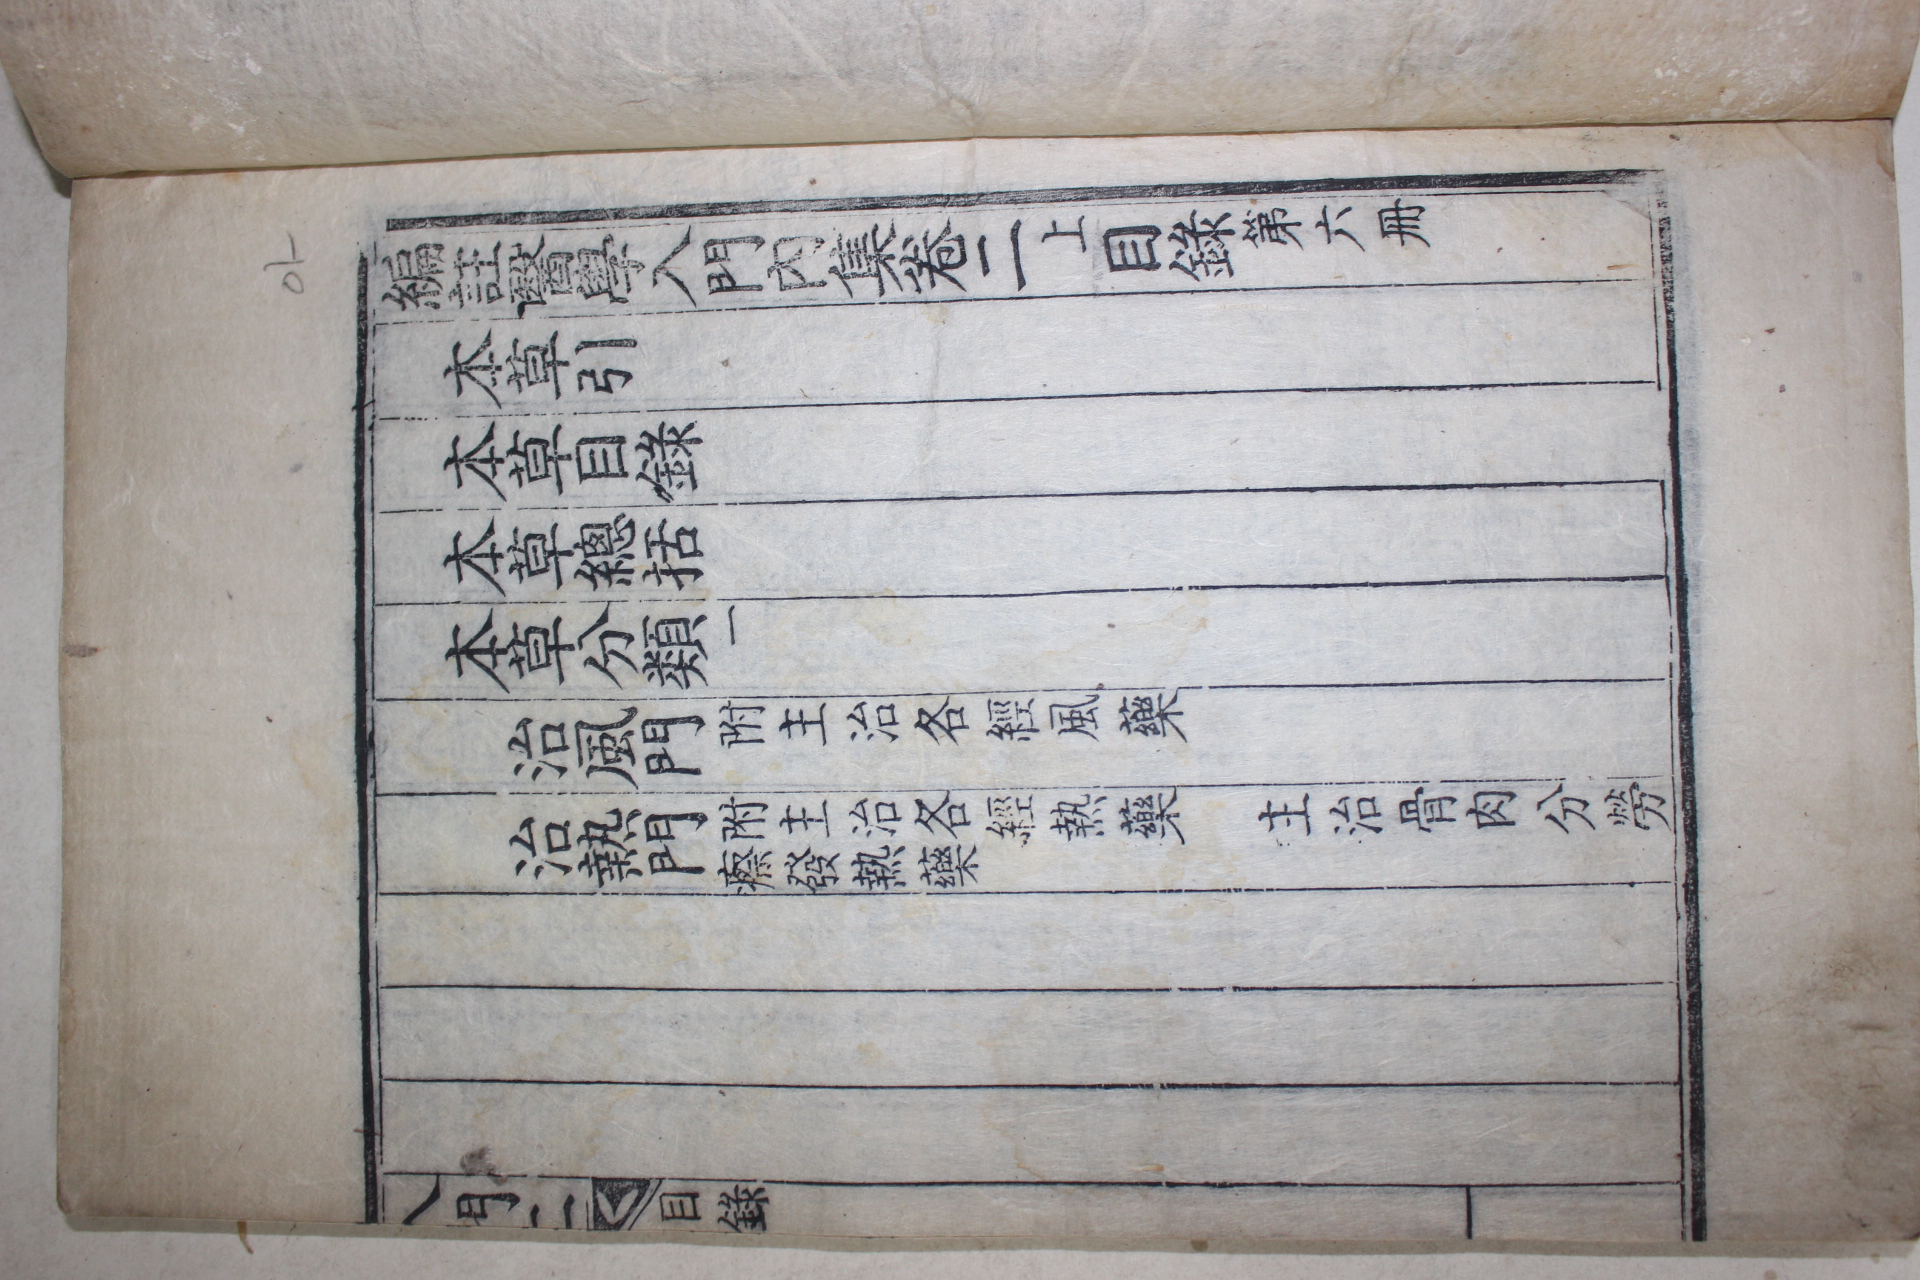 아
編註醫學入門內集卷二上目錄第六冊
本草引
本草目錄
本草總括
本草分類一
治風門附主治各經風藥
治熱門附主治各經熱藥 主治骨肉分勞
瘵發熱藥
入門二 目錄